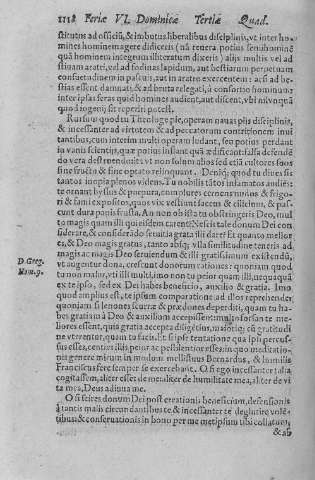 1118 Feriæ VI. Dominicæ Tertiæ Quad.
stitutus ad officiū, & imbutus liberalibus disciplinis, vt inter ho
mines hominem agere didiceris (nā reuera potius semihominē
quā hominem integrum illiteratum dixeris) alijs multis vel ad
stiuam aratri, vel ad fodinas lapidum, aut bestiarum perpetuam
consuetudinem in pascuis, aut in aratro exercentem: acsi ad be-
stias essent damnati, & ad bruta relegati, à consortio hominum
inter ipsas feras quid homines audient, aut discent, vbi nivo quā
quo ingenij sit reperiri potest.
Rursum quod tu Titeologe pie, operam nauas pijs disciplinis,
& incessanter ad virtutem & ad peccatorum contritionem inui
tantibus, cum interim multi operam ludant, seu potius perdant
in vanis scientijs, quæ potius insaniunt quā ædificant: falsa defendē
do vera destruendū, vt non solum alios sed etiā cultores suos
sine fructu & fine optato relinquant. Deniq; quod tu diues sis
tantos inopia plenos videns. Tu nobilis tātos infamatos auditis
te ornant byssus & purpura, complures cernens nudos & frigo-
ri & fami expositos, quos vix vestiunt saccus & cilicium, & pas-
cunt dura panis frusta. An non ob ista tu obstringeris Deo, mul
to magis quam illi qui eisdem carent? Nescis tale donum Dei con
siderare, & considerato seruitia gratis illi dare? Et quanto mello
es, & Deo magis gratus, tanto absq; vlla similitudine teneris ad
magis ac magis Deo seruiendum & illi gratissimum existendū,
D. Greg. vt augentur dona, crescunt donorum rationes: quoniam quod
Hom. 9. tu non malus, vti illi multi, imo non tu peior quam illi, nequaquā
ex te ipso, sed ex Dei habes beneficio, auxilio & gratia. Imo
quod amplius est, te ipsum comparatione ad illos reprehender,
quoniam si lenones scurræ & prædones deperditi, quam tu ha-
bes gratiam à Deo & auxilium accepissent: multo forsan te me-
liores essent, quia gratia accepta diligētius, maiorīq; cū gratitudi
ne vterentur, quam tu facis. Et si ipsi tentatione qua ipsi percus-
sus esses, centies illis peior ac pestilentior esses: in quo meditatio-
nis genere mirum in modum mellifluus Bernardus, & humilis
Franciscus fere semper se exercebant. O si ego incessanter talia
cogitassem, aliter esset de me aliter de humilitate mea, aliter de vi
ta mea, Deus adiuua me.
O si scires donum Dei post creationis beneficium, defensionis
à tantis malis circundantibus te & incessanter te deglutire volē-
tibus: & conseruationis in bono per me metipsum tibi collatum,
& ab